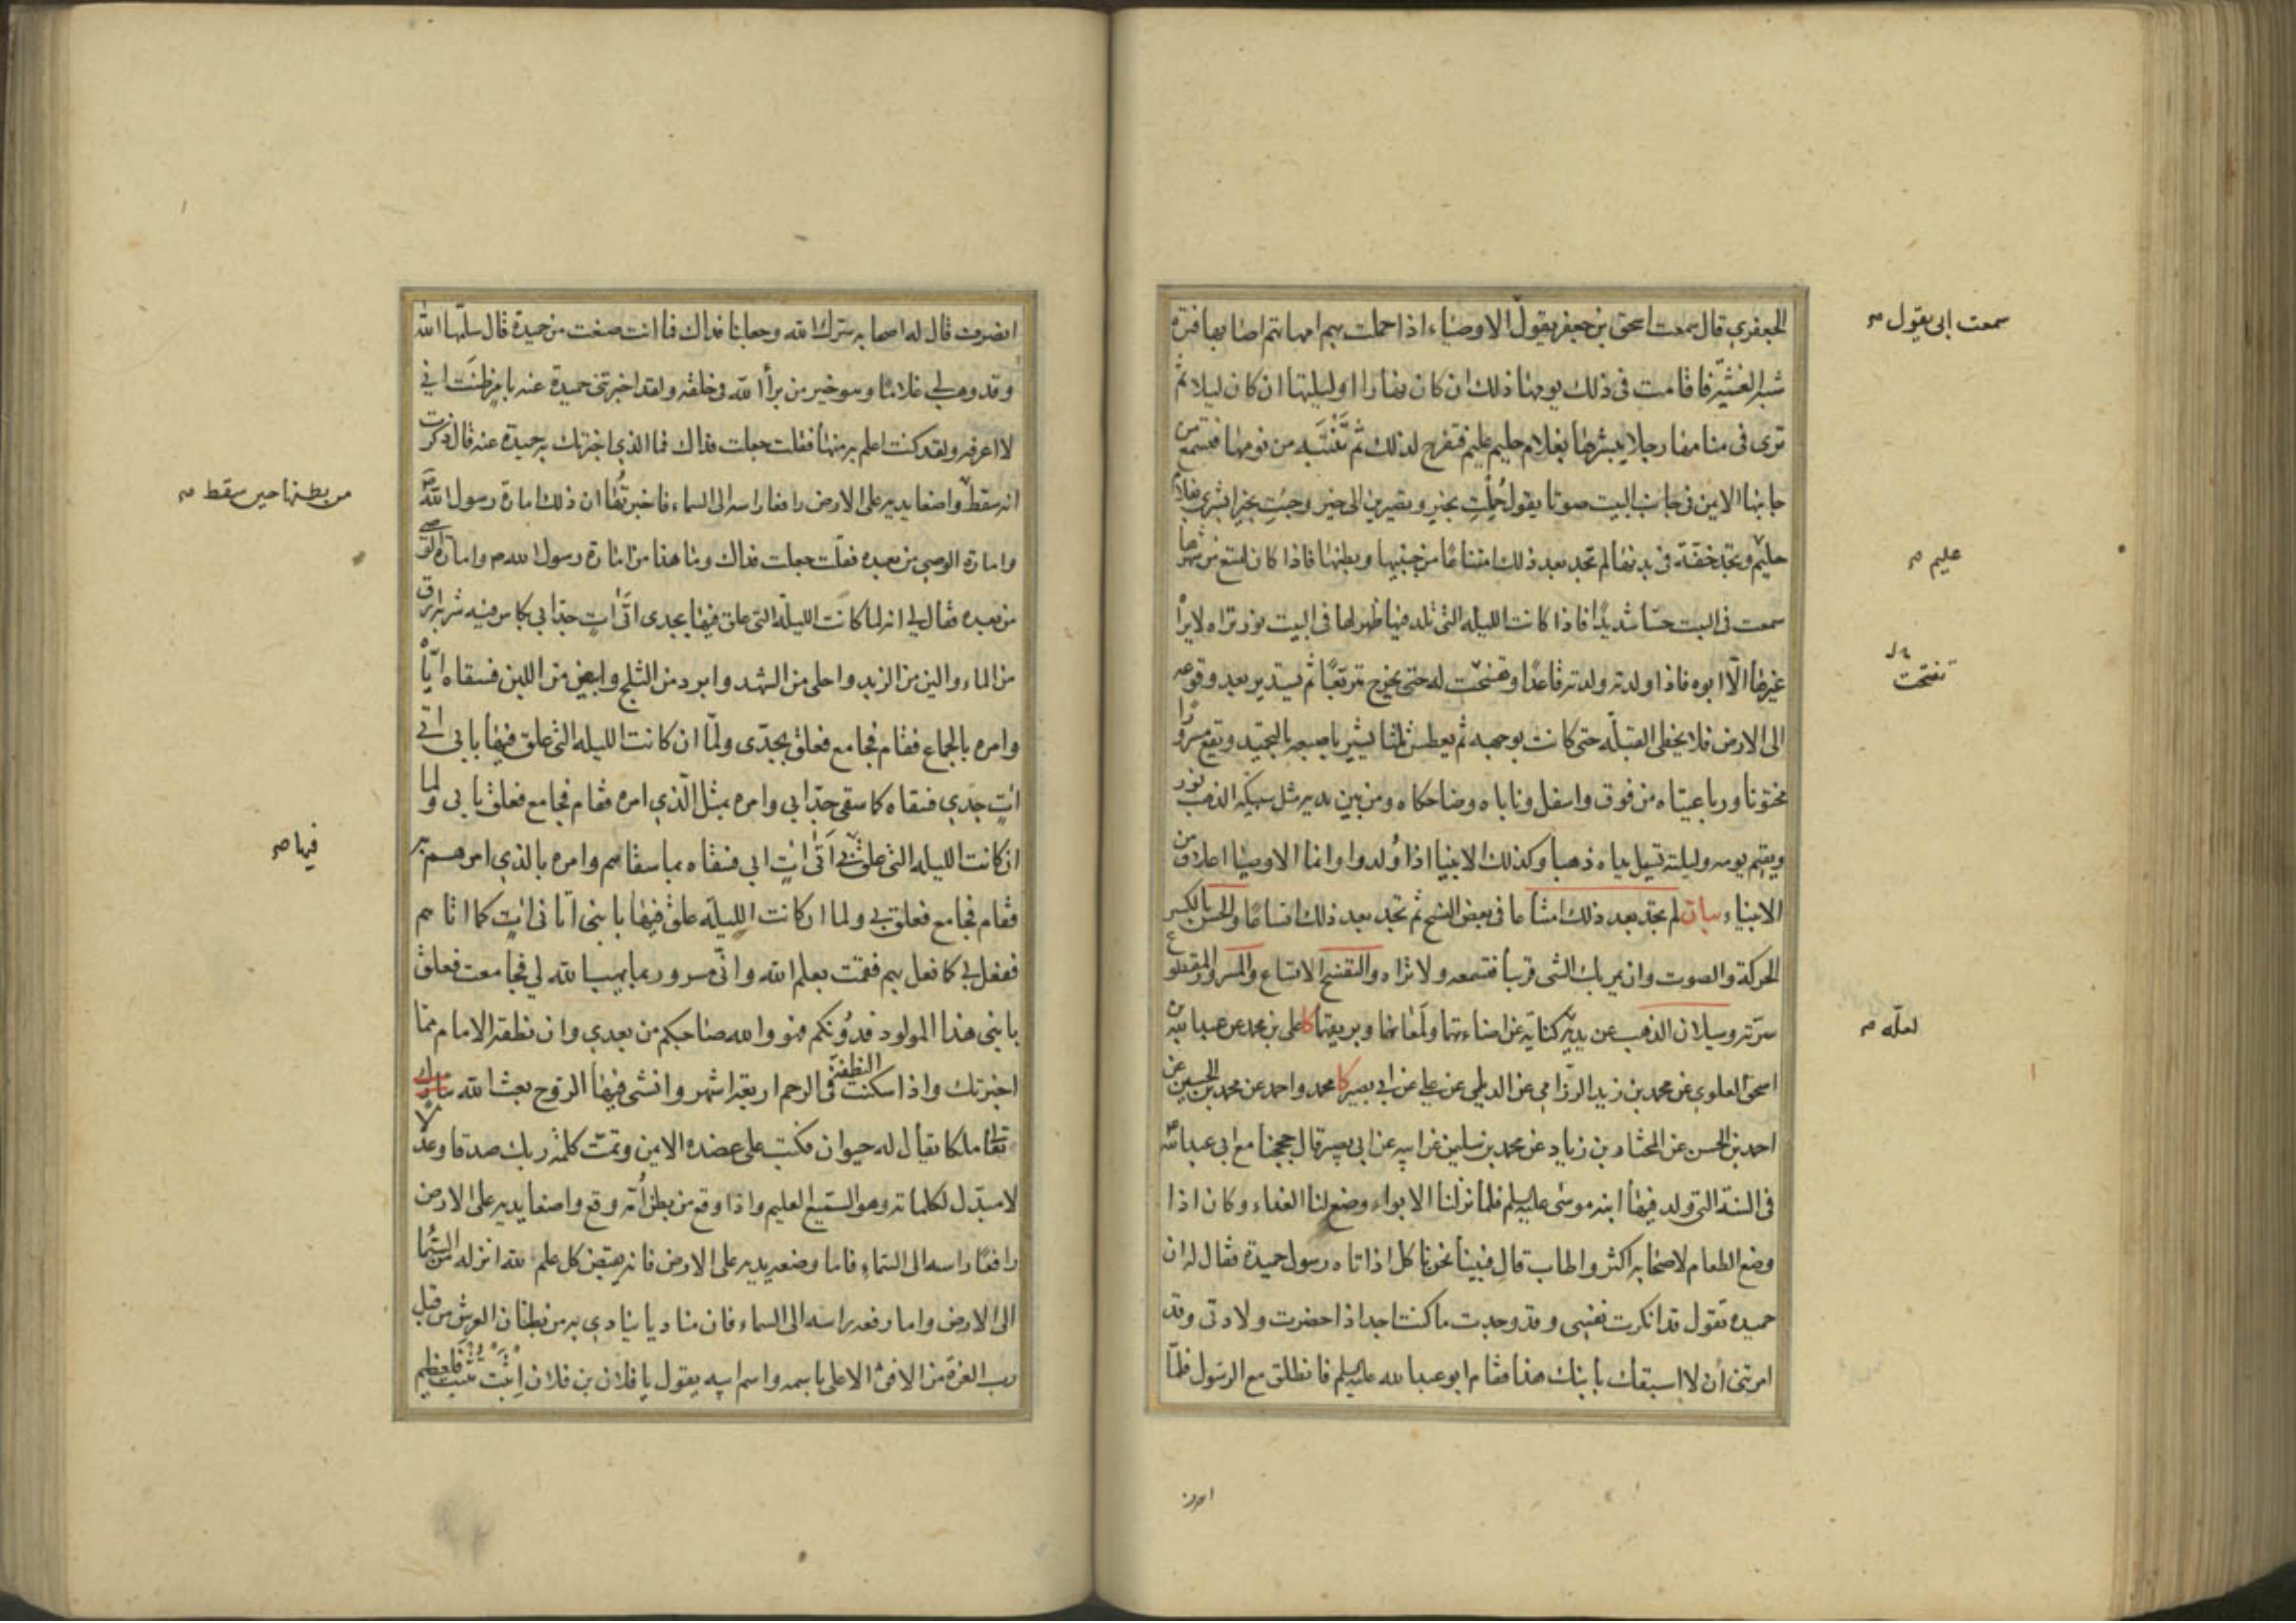 الجعفري قال سمعت اسحق بن جعفر يقول الاوصياء اذا حملت بهم امهاتهم اصابها فترة
سمعت ابي يقول صح
شبه الغشية فاقامت في ذلك يومها ذلك ان كان نهارا او ليلتها ان كان ليلا ثم
ترى في منامها رجلا يبشرها بغلام حليم عليم فتفرح لذلك ثم تنتبه من نومها فتسمع من
جانبها الايمن في جانب البيت صوتا يقول حملت بخير وتصيرين الى خير وجئت بخير ابشري بغلام
حليم وتجد خفة في بدنها لم تجد بعد ذلك امتناعا من جنبيها وبطنها فاذا كان لتسع من شهرها
عليم صح
سمعت في البيت حسا شديدا فاذا كانت الليلة التي تلد فيها ظهر لها في البيت نور تراه لا يراه
غيرها الا ابوه فاذا ولدته ولدته قاعدا وتفتحت له حتى يخرج متربعا ثم يستدير بعد وقوعه
تفتحت
الى الارض فلا يخطي القبلة حتى كانت بوجهه ثم يعطس ثلثا يشير باصبعه بالتحميد ويقع مسرورا
مختونا ورباعيتاه من فوق واسفل وناباه وضاحكاه ومن بين يديه مثل سبيكة الذهب نور
ويقيم يومه وليلته تسيل يداه ذهبا وكذلك الانبيا اذا ولدوا وانما الاوصيا اعلاق من
الانبياء بيان لم تجد بعد ذلك امتناعا في بعض النسخ ثم تجد بعد ذلك اتساعا والحس بالكسر
الحركة والصوت وان يمر بك الشي قريبا فتسمعه ولا تراه والتفتح الاتساع والمسرور المقطوع
سرته وسيلان الذهب عن يديه كناية عن اضاءتهما ولمعانهما وبريقهما كا علي بن محمد عن عبدالله بن
لعله صح
اسحق العلوي عن محمد بن زيد الرزامي عن الديلمي عن علي عن ابي بصير كا محمد واحمد عن محمد بن الحسين عن
احمد بن الحسن عن المختار بن زياد عن محمد بن سليمن عن ابيه عن ابي بصير قال حججنا مع ابي عبدالله
في السنة التي ولد فيها ابنه موسى عليه السلم فلما نزلنا الابواء وضع لنا الغداء وكان اذا
وضع الطعام لاصحابه اكثر واطاب قال فبينا نحن ناكل اذ اتاه رسول حميدة فقال له ان
حميده تقول قد انكرت نفسي وقد وجدت ما كنت اجد اذا حضرت ولادتي وقد
امرتني ان لا اسبقك بابنك هذا فقام ابو عبدالله عليه السلم فانطلق مع الرسول فلما
انصرف قال له اصحابه سرك الله وجعلنا فداك فما انت صنعت من حميدة قال سلمها الله
وقد وهب لي غلاما وهو خير من برأ الله في خلقه ولقد اخبرتني حميدة عنه بامر ظنت اني
لا اعرفه ولقد كنت اعلم به منها فقلت جعلت فداك فما الذي اخبرتك به حميدة عنه قال ذكرت
انه سقط واضعا يديه على الارض رافعا راسه الى السماء فاخبرتها ان ذلك امارة رسول الله
من بطنها حين سقط صح
وامارة الوصي من بعده فقلت جعلت فداك وما هذا من امارة رسول الله ص وامارة الوصي
من بعده فقال لي انه لما كانت الليلة التي علق فيها بجدي اتى ات جد ابي بكاس فيه شربة ارق
من الماء والين من الزبد واحلى من الشهد وابرد من الثلج وابيض من اللبن فسقاه اياه
وامره بالجماع فقام فجامع فعلق بجدي ولما ان كانت الليله التي علق فيها بابي اتى
ات جدي فسقاه كما سقى جد ابي وامره بمثل الذي امره فقام فجامع فعلق بابي ولما
ان كانت الليله التي علق بي اتى ات ابي فسقاه بما سقاهم وامره بالذي امرهم به
فيها صح
فقام فجامع فعلق بي ولما ان كانت الليلة علق فيها بابني اتاني ات كما اتاهم
ففعل بي كما فعل بهم فقمت بعلم الله واني مسرور بما يهب الله لي فجامعت فعلق
بابني هذا المولود فدونكم فهو والله صاحبكم من بعدي وان نطفة الامام مما
اخبرتك واذا سكنت النطفة في الرحم اربعة اشهر وانشئ فيها الروح بعث الله تبارك
وتعالى ملكا يقال له حيوان فكتب على عضده الايمن وتمت كلمة ربك صدقا وعدلا
لا مبدل لكلماته وهو السميع العليم واذا وقع من بطن امه وقع واضعا يديه على الارض
رافعا راسه الى السماء فاما وضعه يديه على الارض فانه يقبض كل علم لله انزله من السماء
الى الارض واما رفعه راسه الى السماء فان مناديا ينادي به من بطنان العرش من قبل
رب العزة من الافق الاعلى باسمه واسم ابيه يقول يا فلان بن فلان اثبت تثبت فلعظيم
امرتني